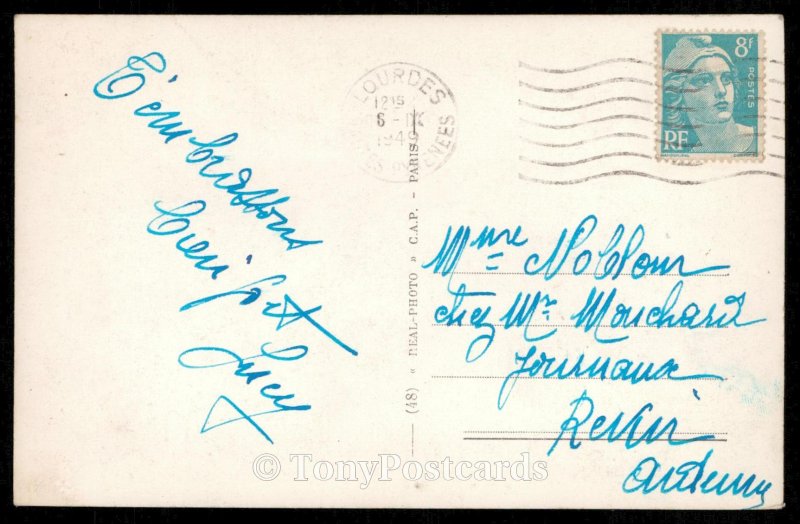 T'embrassons
bien fort
Lucy
LOURDES
12 15
6 - IX
194
PYRENEES
8f
POSTES
RF
(48) « REAL-PHOTO » C.A.P. - PARIS
Mme Noblour
chez Mr. Mouchard
Journaux
Revin
Ardennes
© TonyPostcards